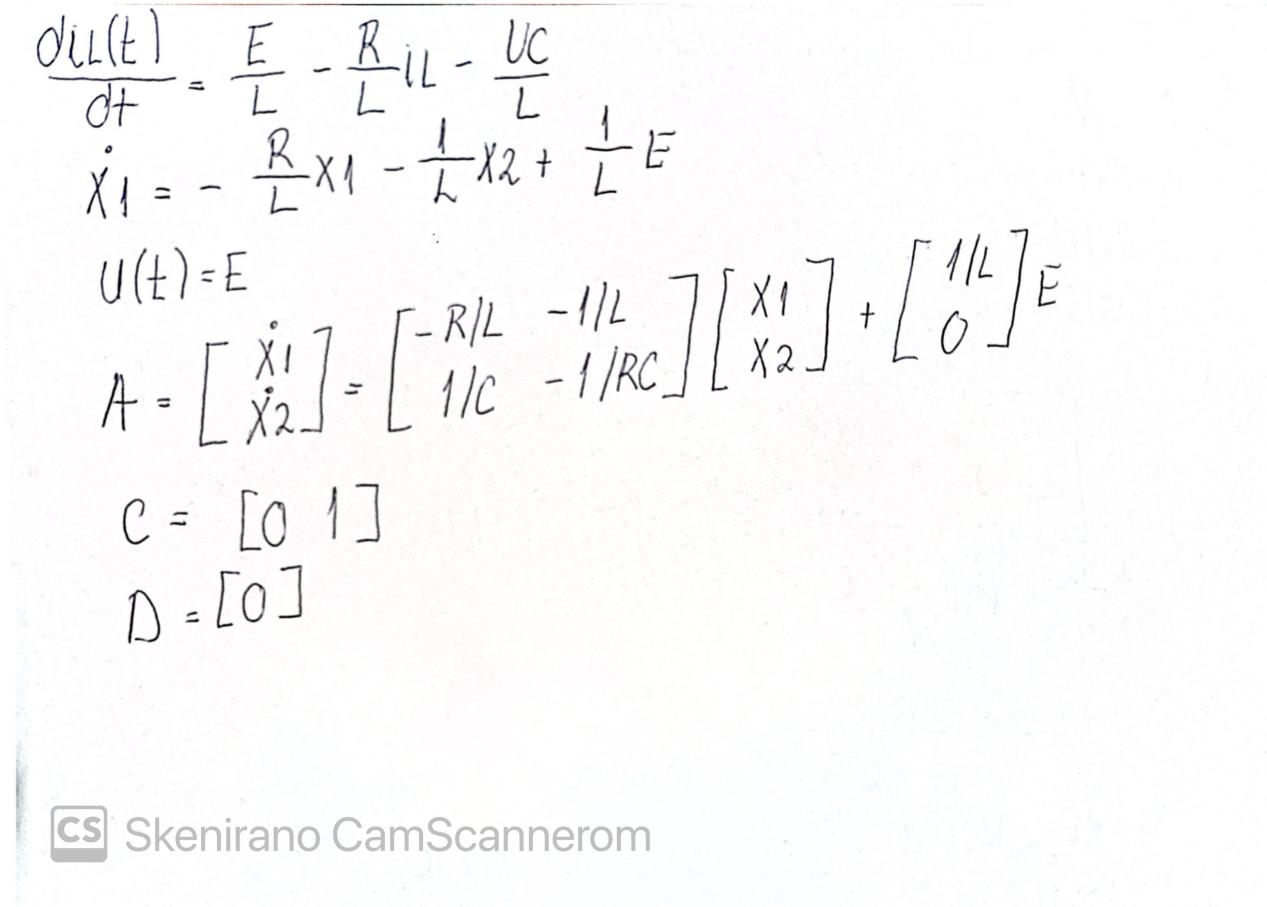 diL(t)/dt = E/L - R/L iL - UC/L
ẋ1 = - R/L x1 - 1/L x2 + 1/L E
U(t) = E
A = [ẋ1 ẋ2] = [-R/L -1/L 1/C -1/RC] [x1 x2] + [1/L 0] E
C = [0 1]
D = [0]
CS Skenirano CamScannerom